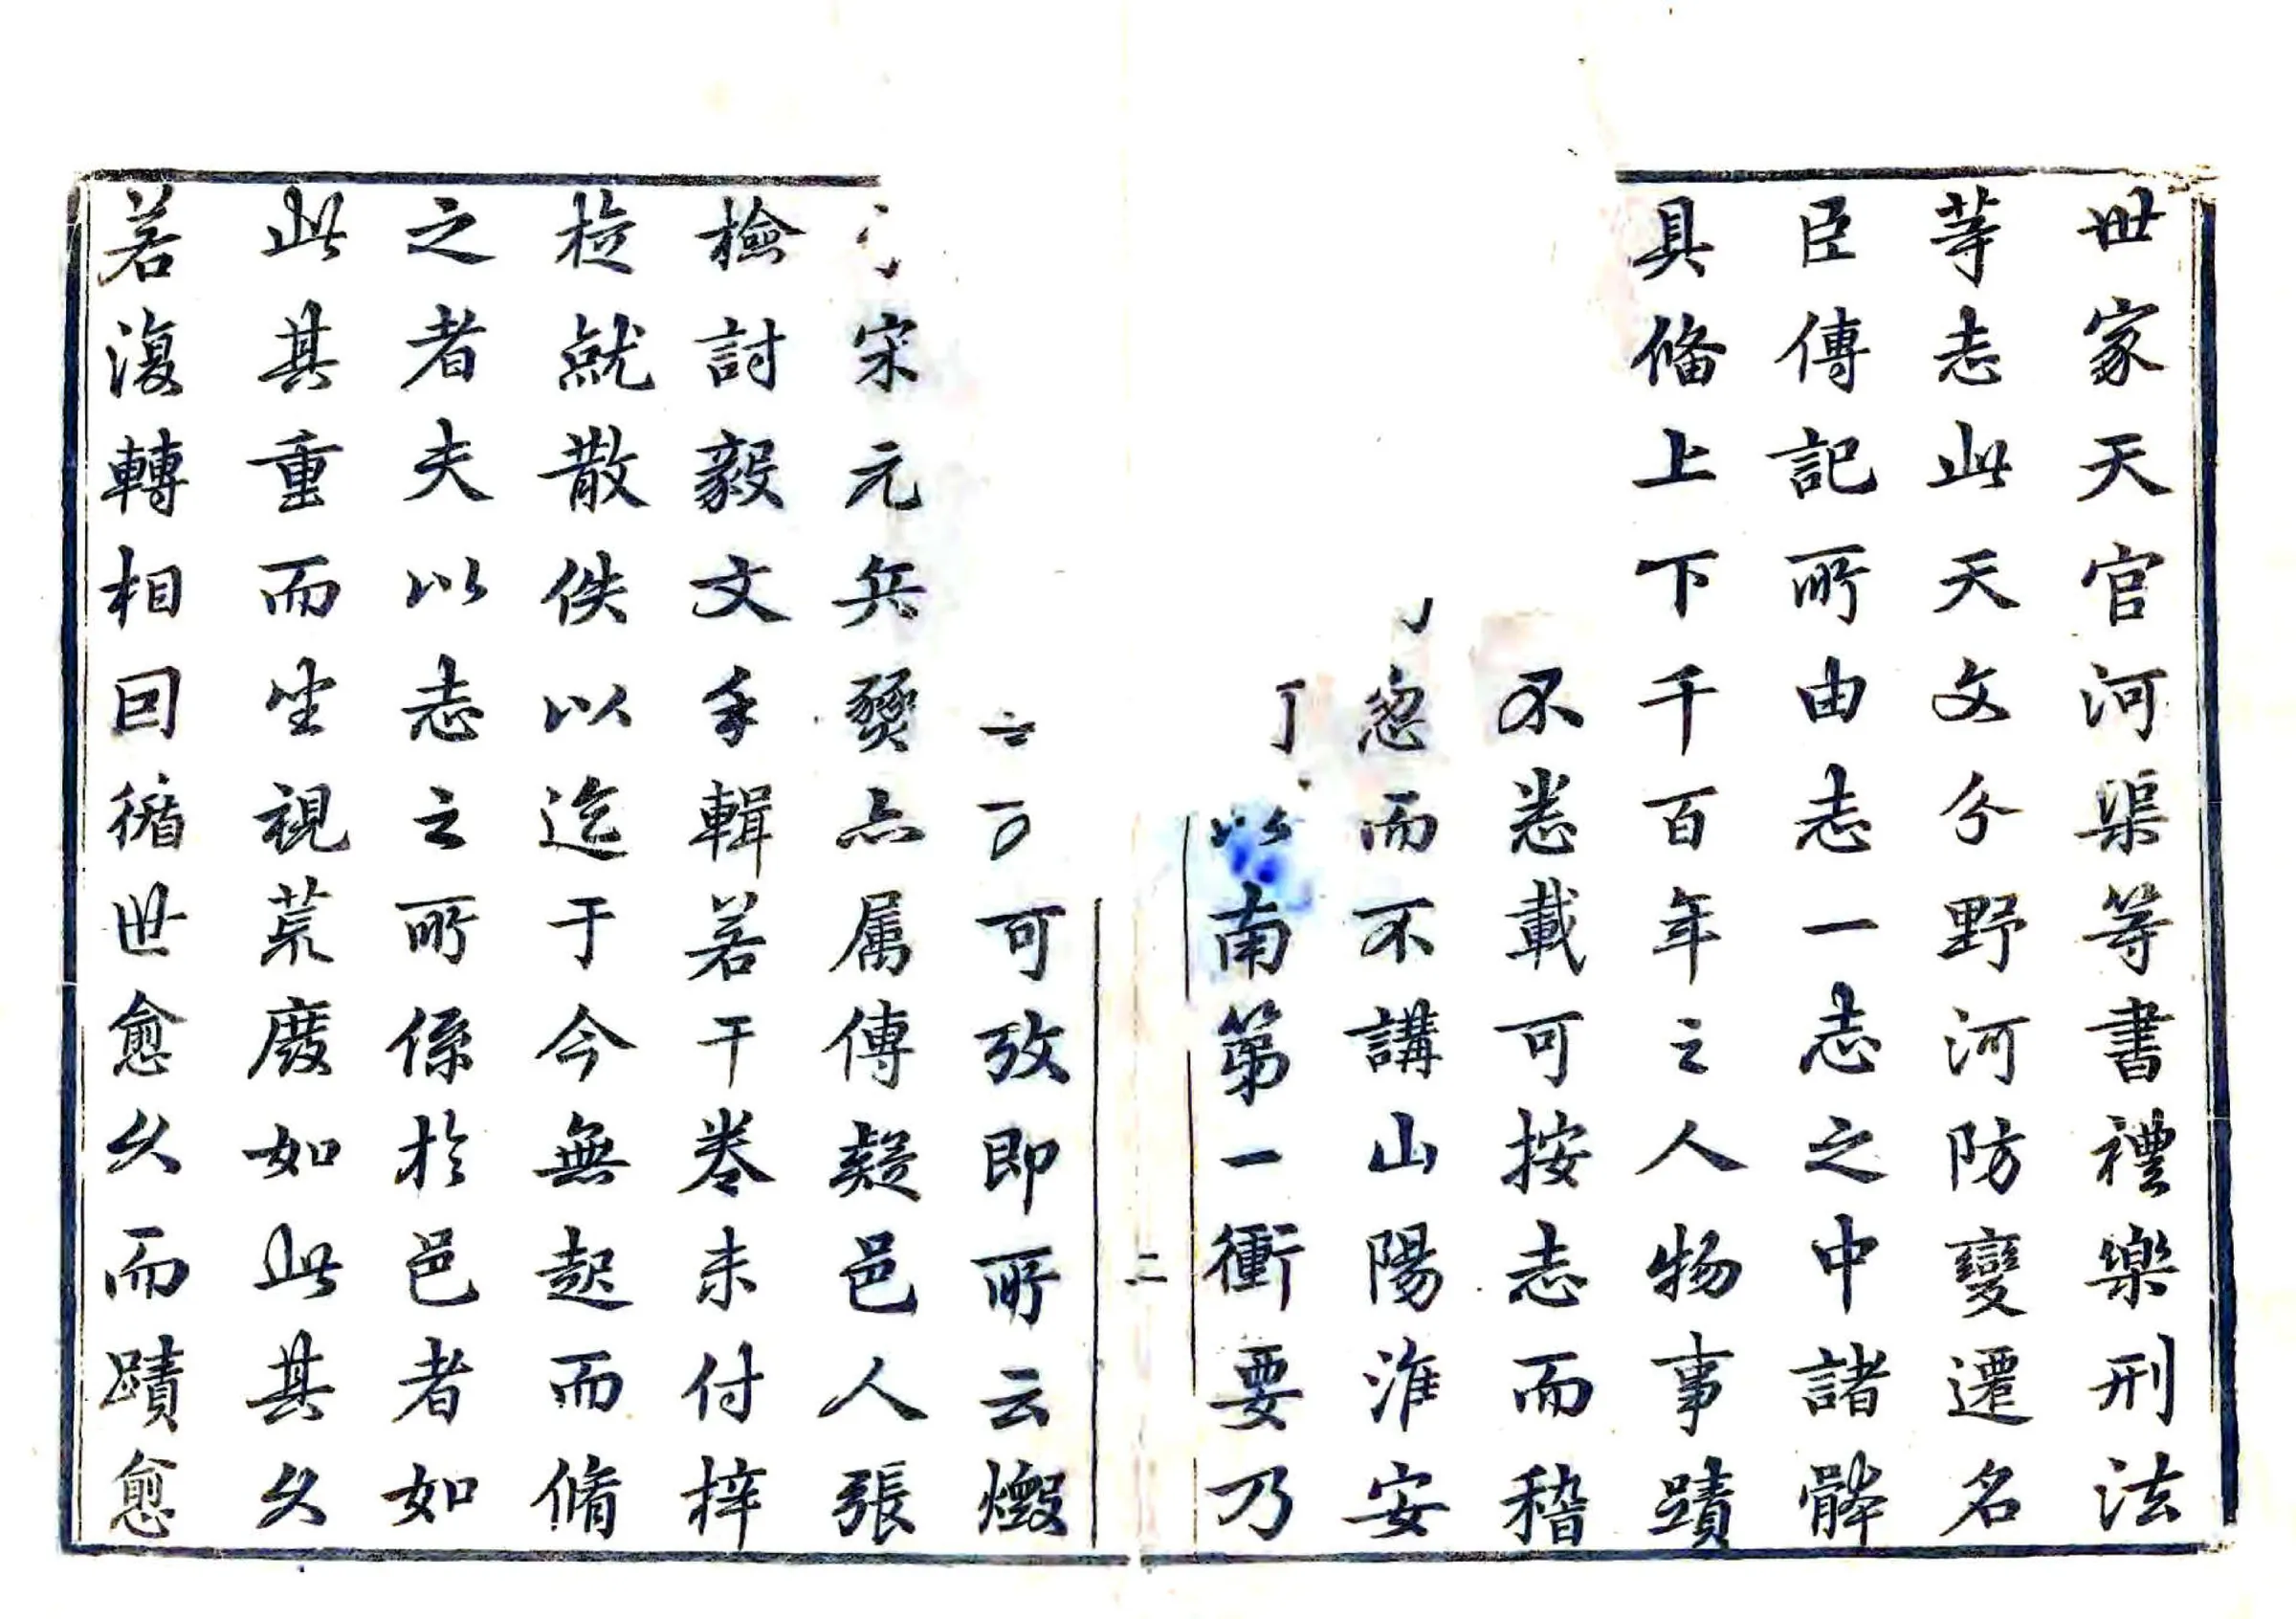 世家天官河渠等書禮樂刑法
等志此天文分野河防變遷名
臣傳記所由志一志之中諸體
具俻上下千百年之人物事蹟
不悉載可按志而稽
忽而不講山陽淮安
以南第一衝要乃
二
可攷即所云燬
宋元兵燹亦属傳疑邑人張
檢討毅文手輯若干卷未付梓
旋就散佚以迄于今無起而脩
之者夫以志之所係於邑者如
此其重而坐視荒廢如此其久
若復轉相因循世愈久而蹟愈